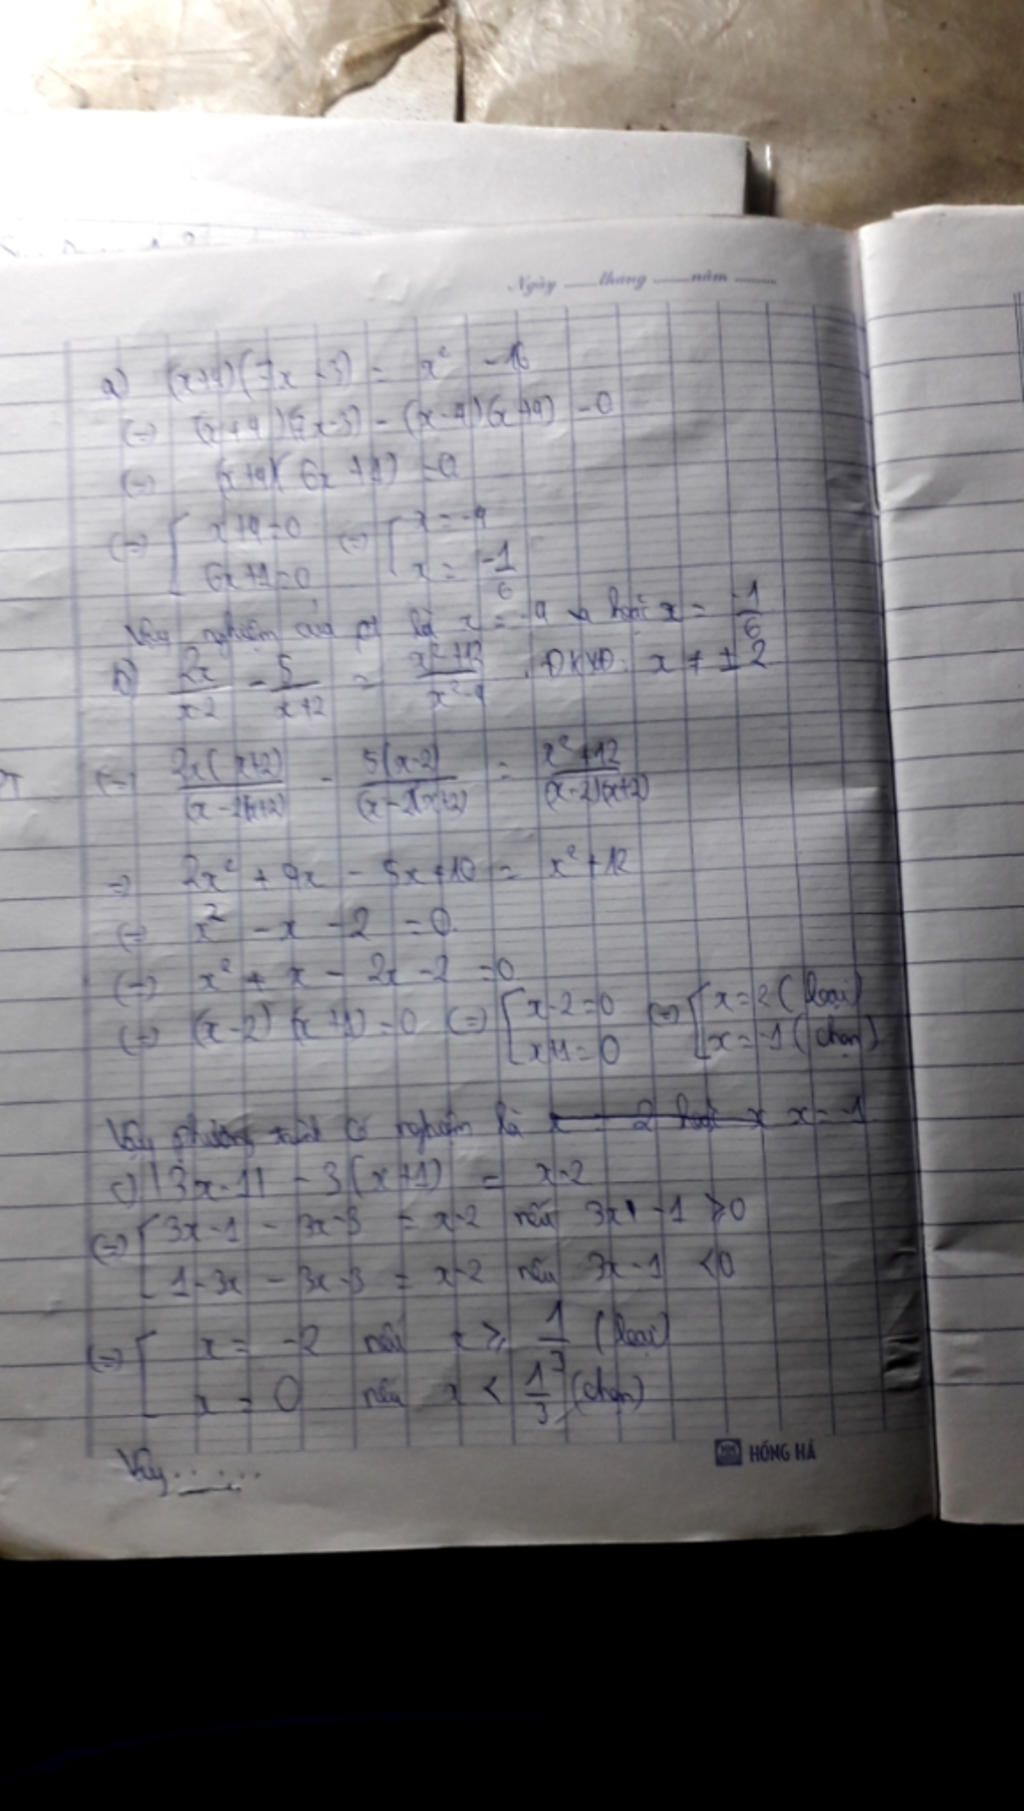 Ngày ........ tháng ........ năm ........
a) (x+4)(7x-3) = x² - 16
(=) (x+4)(7x-3) - (x-4)(x+4) = 0
(=) (x+4)(6x+1) = 0
(=) [ x+4=0 (=) [ x=-4
6x+1=0 x = -1/6
Vậy nghiệm của pt là x = -4 hoặc x = -1/6
b) 2x/(x-2) - 5/(x+2) = (x²+12)/(x²-4) . ĐKXĐ: x ≠ ±2
(=) 2x(x+2)/(x-2)(x+2) - 5(x-2)/(x-2)(x+2) = (x²+12)/(x-2)(x+2)
=) 2x² + 4x - 5x+10 = x²+12
(=) x² - x - 2 = 0.
(=) x² + x - 2x - 2 = 0
(=) (x-2)(x+1)=0 (=) [ x-2=0 (=) [ x=2 (loại)
x+1=0 x=-1 (chọn)
Vậy phương trình có nghiệm là x = 2 hoặc x x=-1
c) |3x-1| - 3(x+1) = x-2
(=) [ 3x-1 - 3x-3 = x-2 nếu 3x-1 ≥0
1-3x - 3x-3 = x-2 nếu 3x-1 <0
(=) [ x = -2 nếu x ≥ 1/3 (loại)
x = 0 nếu x < 1/3 (chọn)
Vậy......
HỒNG HÀ